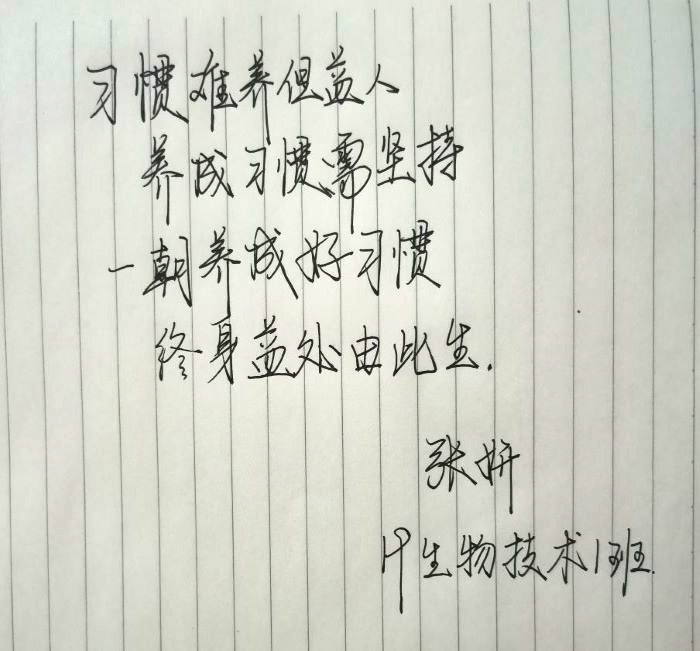 习惯难养但益人
养成习惯需坚持
一朝养成好习惯
终身益处由此生.
张妍
19生物技术1班.